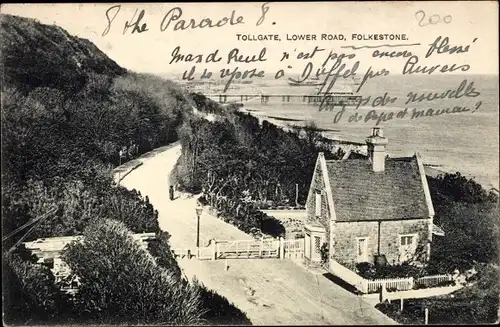 8 the Parade 8
TOLLGATE, LOWER ROAD, FOLKESTONE.
200
n'est pas encore blessé
Ils repose à Duffel près Anvers
pas des nouvelles
de Papa et maman!